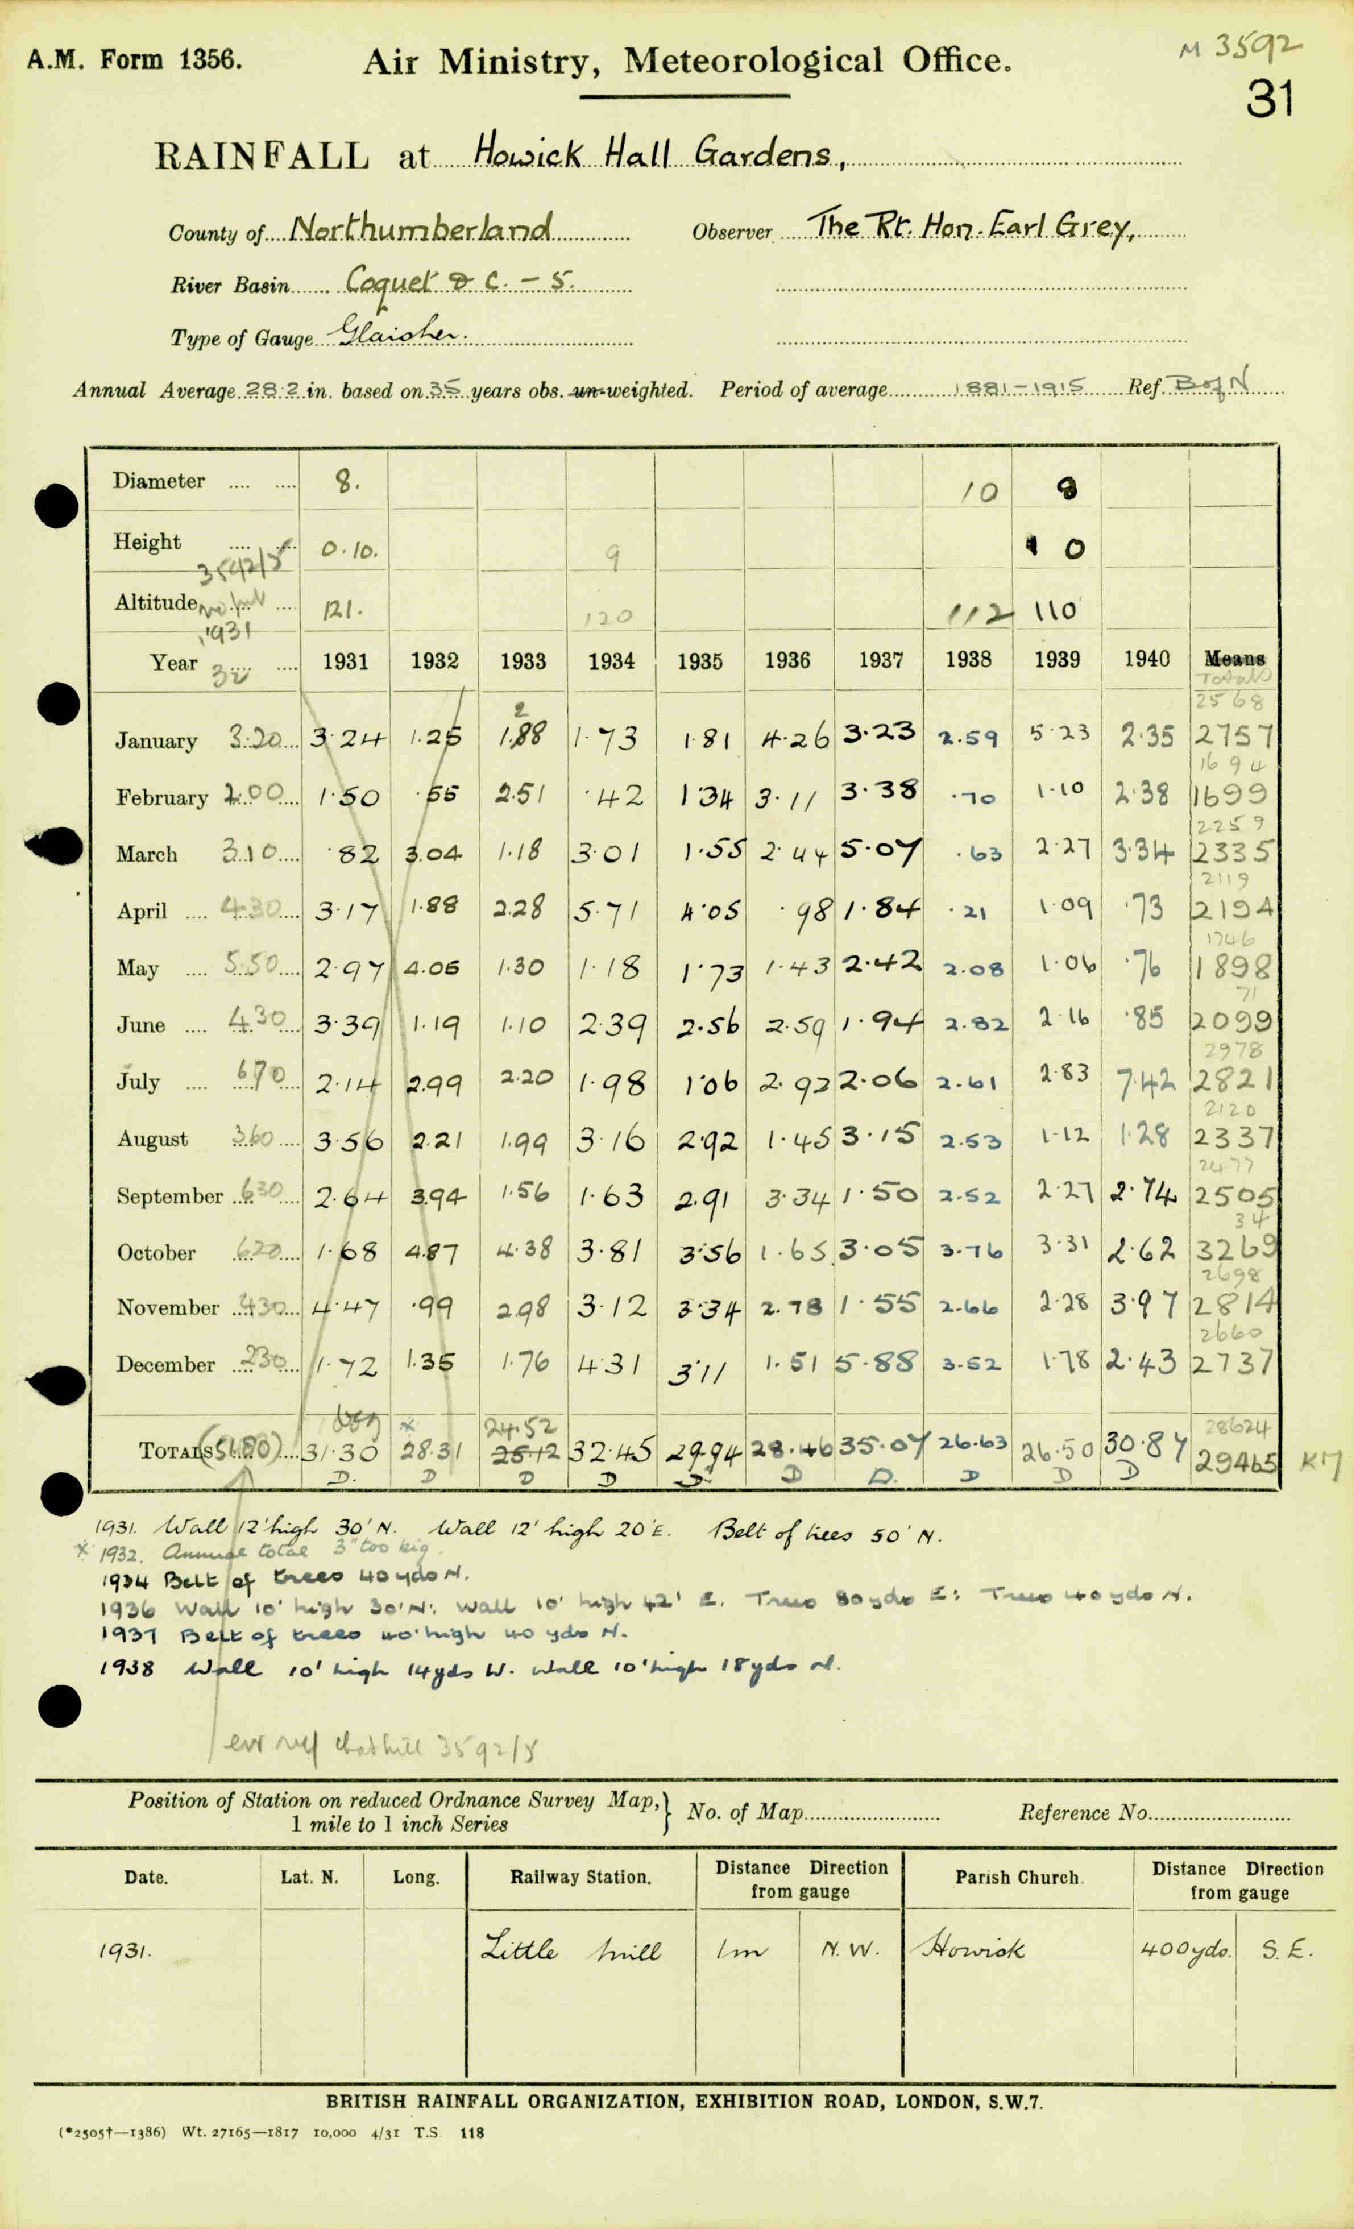 A.M. Form 1356. Air Ministry, Meteorological Office. M 3592
31
RAINFALL at Howick Hall Gardens,
County of Northumberland Observer The Rt. Hon. Earl Grey,
River Basin Coquet & C. - 5.
Type of Gauge Glaisher.
Annual Average 28.2 in. based on 35 years obs. un-weighted. Period of average 1881-1915 Ref. B of N
Diameter .... .... 8. 10 8
Height .... .... 0.10. 9 1 0
3592/5
Altitude .... 121. 120 112 110
1931
Year .... .... 1931 1932 1933 1934 1935 1936 1937 1938 1939 1940 Means
Totals
2 2568
January 3.20 3.24 1.25 1.88 1.73 1.81 4.26 3.23 2.59 5.23 2.35 2757
1694
February 2.00 1.50 .55 2.51 .42 1.34 3.11 3.38 .70 1.10 2.38 1699
2259
March 3.10 .82 3.04 1.18 3.01 1.55 2.44 5.07 .63 2.27 3.34 2335
2119
April .... 4.30 3.17 1.88 2.28 5.71 4.05 .98 1.84 .21 1.09 .73 2194
1746
May .... 5.50 2.97 4.05 1.30 1.18 1.73 1.43 2.42 2.08 1.06 .76 1898
71
June .... 4.30 3.39 1.19 1.10 2.39 2.56 2.59 1.94 2.82 2.16 .85 2099
2978
July .... 6.70 2.14 2.99 2.20 1.98 1.06 2.92 2.06 2.61 2.83 7.42 2821
2120
August 3.60 3.56 2.21 1.99 3.16 2.92 1.45 3.15 2.53 1.12 1.28 2337
2477
September 6.30 2.64 3.94 1.56 1.63 2.91 3.34 1.50 2.52 2.27 2.74 2505
34
October 6.20 1.68 4.87 4.38 3.81 3.56 1.65 3.05 3.76 3.31 2.62 3269
2698
November 4.30 4.47 .99 2.98 3.12 3.34 2.78 1.55 2.66 2.28 3.97 2814
2660
December 2.30 1.72 1.35 1.76 4.31 3.11 1.51 5.88 3.52 1.78 2.43 2737
x 24.52 28624
TOTALS (51.80) 31.30 28.31 25.12 32.45 29.94 28.46 35.07 26.63 26.50 30.87 29465 KM
D. D D D D D D. D D D
1931. Wall 12' high 30' N. Wall 12' high 20' E. Belt of trees 50' N.
x 1932. Annual total 3" too big.
1934 Belt of trees 40 yds N.
1936 Wall 10' high 30' N: Wall 10' high 42' E. Trees 80 yds E: Trees 40 yds N.
1937 Belt of trees 40' high 40 yds N.
1938 Wall 10' high 14 yds W. Wall 10' high 18 yds N.
chathill 3592/5
Position of Station on reduced Ordnance Survey Map, 1 mile to 1 inch Series } No. of Map Reference No.
Date. Lat. N. Long. Railway Station. Distance Direction from gauge Parish Church. Distance Direction from gauge
1931. Little Mill 1m N.W. Howick 400yds. S.E.
BRITISH RAINFALL ORGANIZATION, EXHIBITION ROAD, LONDON, S.W.7.
(*2505†—1386) Wt. 27165—1817 10,000 4/31 T.S. 118